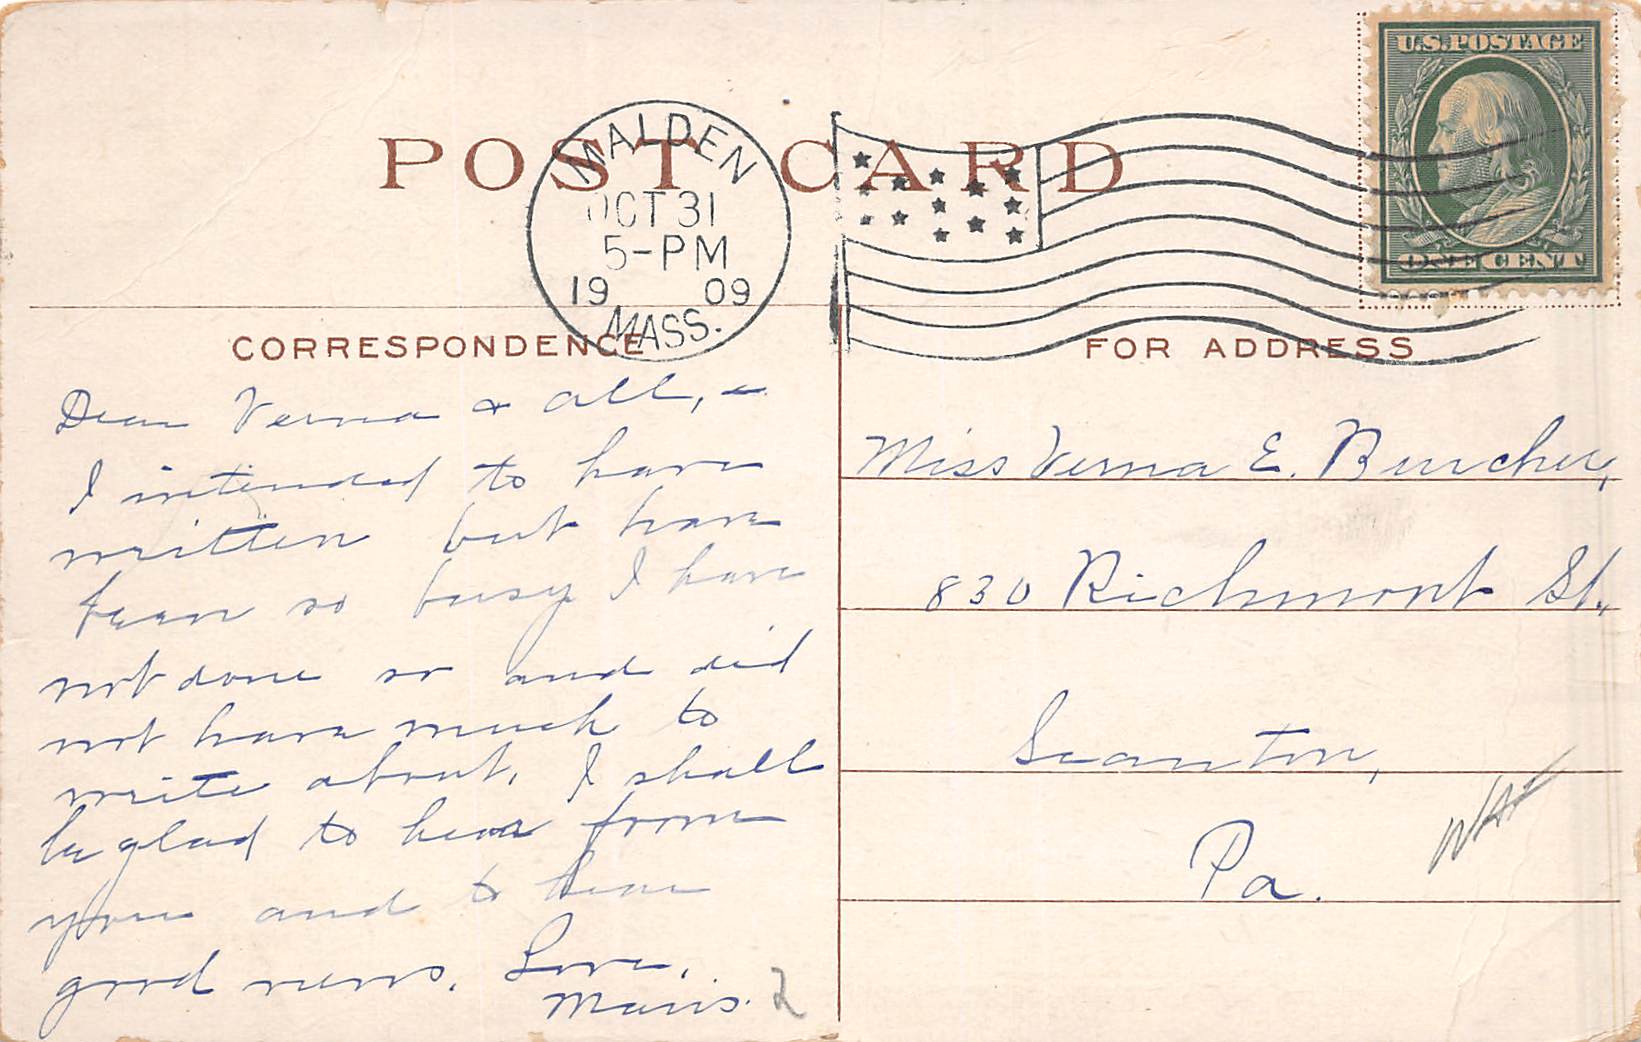 U.S. POSTAGE
ONE CENT
POST CARD
MALDEN
OCT 31
5-PM
1909
MASS.
CORRESPONDENCE
Dear Verna & all, -
I intended to have
written but have
been so busy I have
not done so and did
not have much to
write about. I shall
be glad to hear from
you and to hear
good news. Love,
2
FOR ADDRESS
Miss Verna E. Burcher,
830 Richmont St.,
Scranton,
Pa.